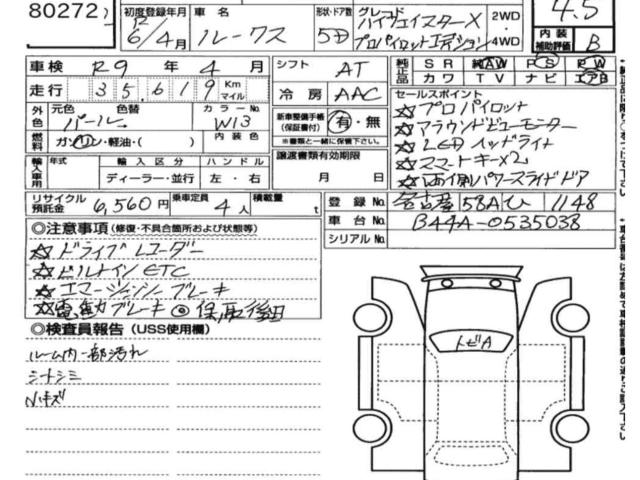 80272
初度登録年月 R 6/4月 車名 ルークス 形状・ドア数 5D グレード ハイウェイスターX プロパイロットエディション 2WD・4WD 4.5
内装補助評価 B
車検 R9年 4月 シフト AT 純正品 SR 純AW PS PW
カワ TV ナビ エアB
走行 35,619 Km マイル 冷房 AAC
外色 元色 色替 パール カラーNo W13 内装色
新車整備手帳(保証書付) 有・無
※書類と一緒に保管下さい。
燃料 ガソリン・軽油・( )
セールスポイント
☆プロパイロット
☆アラウンドビューモニター
☆LEDヘッドライト
☆スマートキー×2
☆両側パワースライドドア
輸入車用 年式 輸入区分 ハンドル
ディーラー・並行 左・右
譲渡書類有効期限
月 日
リサイクル預託金 6,560円 乗車定員 4人 積載量 t
登録No. 名古屋 58A ひ 1148
車台No. B44A-0535038
シリアルNo.
◎注意事項(修復・不具合箇所および状態等)
☆ドライブレコーダー
☆ビルトインETC
☆エマージェンシーブレーキ
☆電動ブレーキ ◎保、取後日
◎検査員報告(USS使用欄)
ルーム内一部汚れ
シートシミ
小キズ
トビA